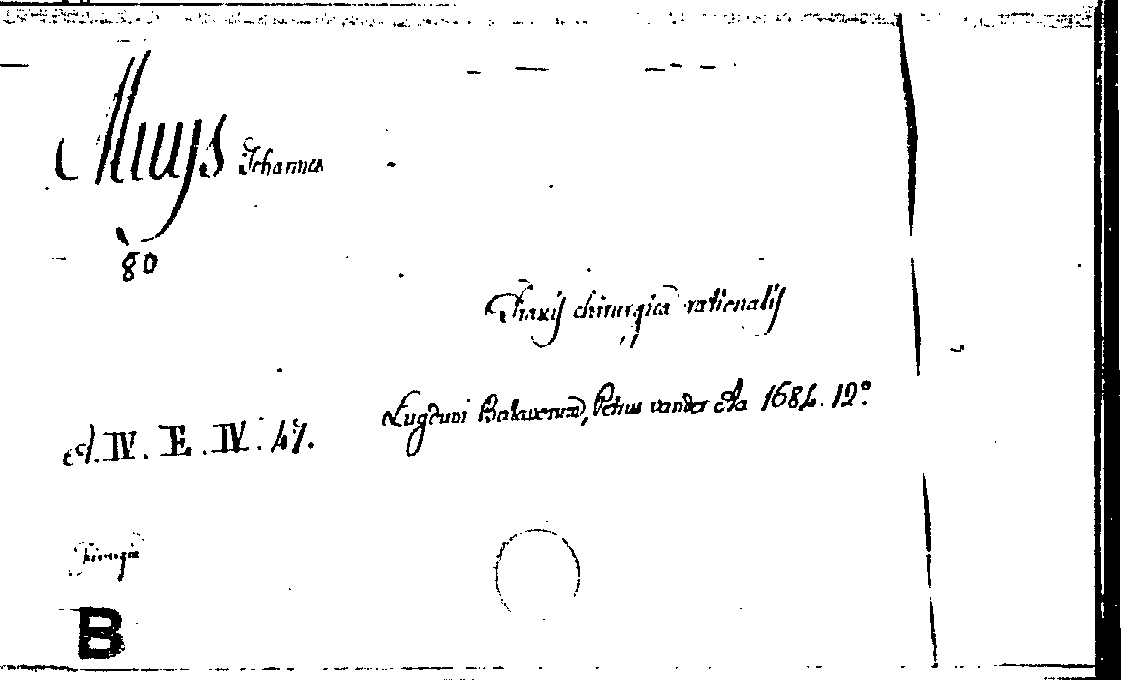 Muys Johannes
80
Praxis chirurgica rationalis
Lugduni Batavorum, Petrus vander Aa 1684. 12º
A. IV. E. IV. 47.
Chirurgia
B